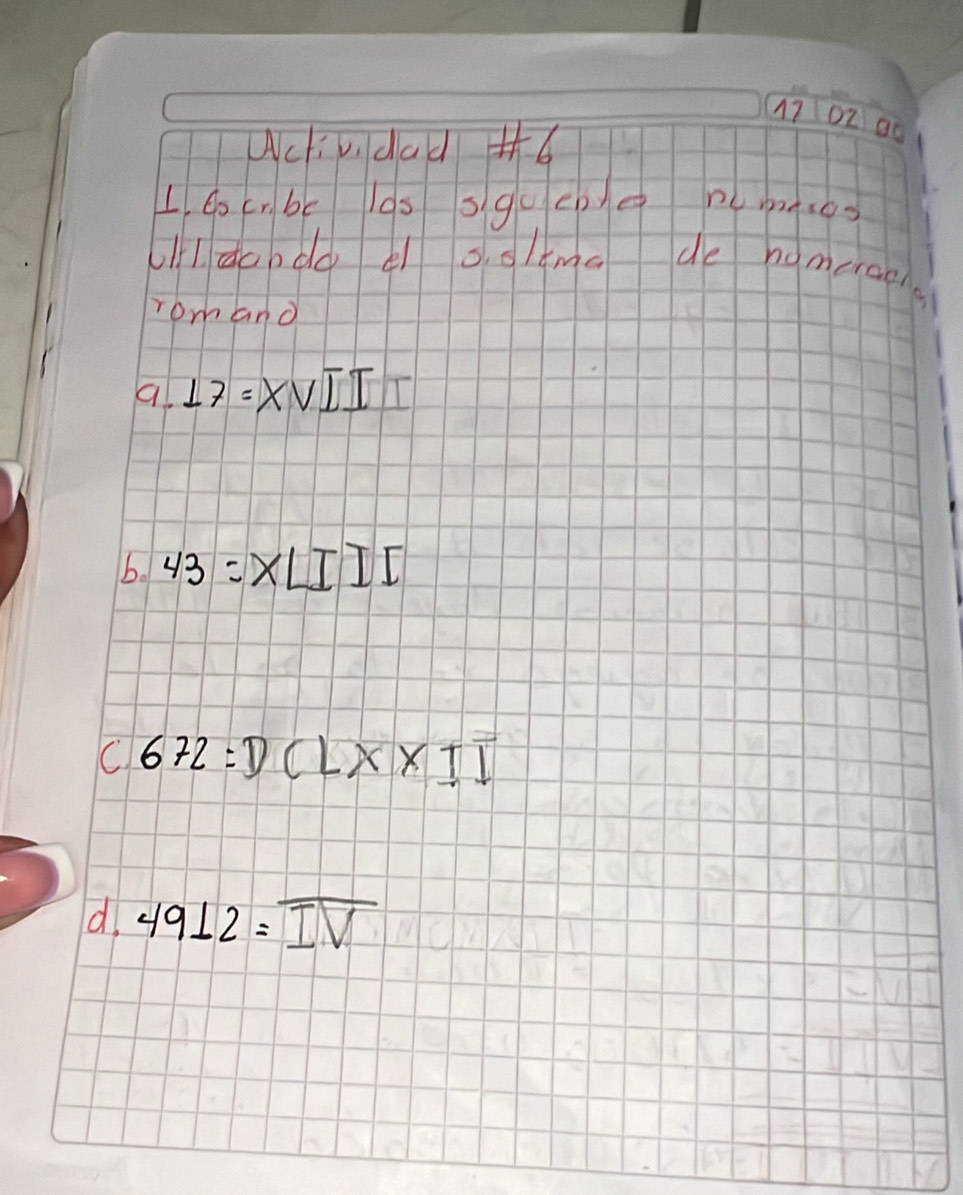 17 02
Actividad #6
1. Escribe los siguientes numeros
utilizando el sistema de numeracion
romano
a. 17 = XVII
b. 43 = XLIII
c. 672 = DCLXXII
d. 4912 = I̅V̅